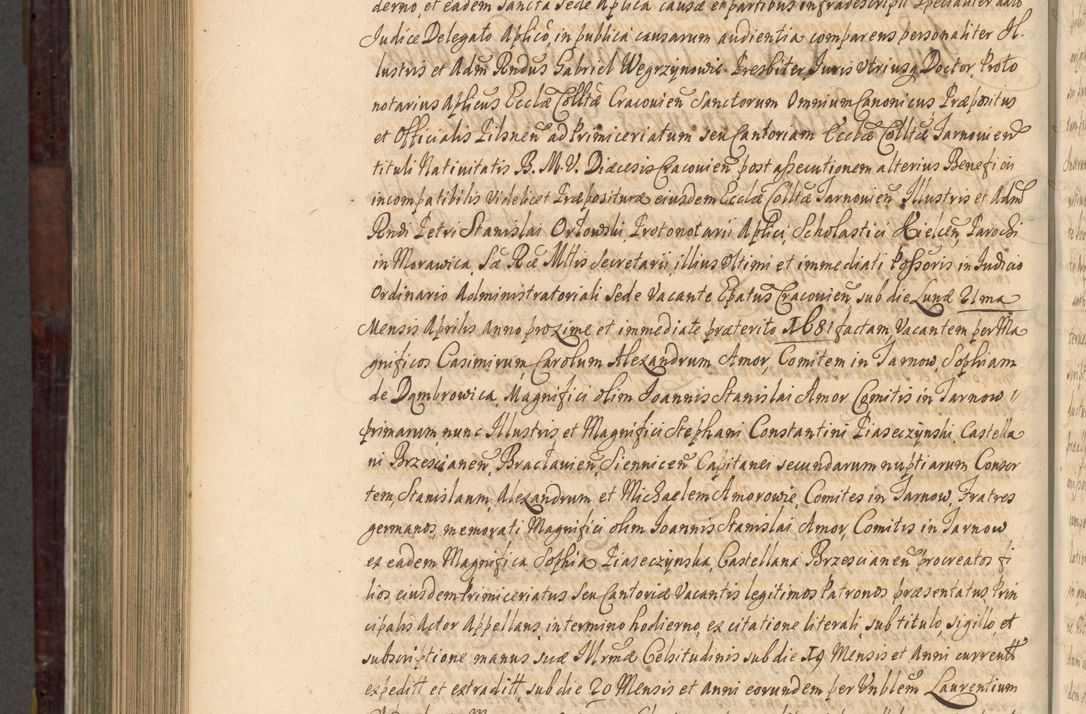 derno, et eadem Sancta Sede Aplica causæ ex partibus infradescripti specialiter dato
Judice Delegato Aplico, in publica causarum audientia comparens personaliter Il-
lustris et Adm Rndus Gabriel Węgrzynowic Presbiter, Juris utriusq Doctor, Proto
notarius Aplicus Ecclæ Colltæ Cracovien Sanctorum Omnium Canonicus Præpositus
et Officialis Pilsnen ad Primiceriatum seu Cantoriam Ecclæ Colltæ Tarnovien
tituli Nativitatis B. M. V. Diæcesis Cracovien post assecutionem alterius Beneficii
incompatibilis videlicet Præposituræ eiusdem Ecclæ Colltæ Tarnovien, Illustris et Adm
Rndi Petri Stanislai Orłowski, Protonotarii Aplici, Scholastici Kielcen, Parochi
in Morawica, Sæ Ræ Mttis Secretarii, illius ultimi et immediati Possoris in Judicio
Ordinario Administratoriali Sede Vacante Epatus Cracovien sub die Lunæ 21ma
Mensis Aprilis Anno proxime et immediate præterito 1681 factam, Vacantem per Ma
gnificos Casimirum, Carolum Alexandrum Amor, Comitem in Tarnow, Sophiam
de Dąmbrowica, Magnifici olim Joannis Stanislai Amor Comitis in Tarnow
primarum nunc Illustris, et Magnifici Stephani Constantini Piaseczynski, Castella
ni Brzescianen, Bracłavien, Siennicen Capitanei secundarum nuptiarum Consor
tem, Stanislaum, Alexandrum et Michaelem Amorowie, Comites in Tarnow, Fratres
germanos, memorati Magnifici olim Joannis Stanislai Amor, Comitis in Tarnow
ex eadem Magnifica Sophia Piaseczynska, Castellana Brzescianen procreatos fi
lios eiusdem Primiceriatus Seu Cantoriæ Vacantis legitimos Patronos præsentatus, Prin
cipalis Actor Appellans, in termino hodierno, ex citatione literali, sub titulo, sigillo, et
subscriptione manus suæ Illrmæ Celsitudinis sub die 19 Mensis et Anni currentt
expeditt et extraditt, sub die 20 Mensis et Anni eorundem per Vnblem Laurentium